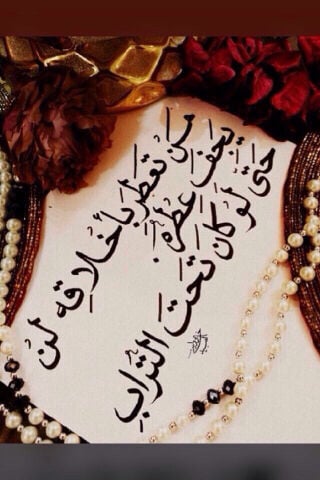 مَنْ تَعَطَّرَ بأَخْلَاقِهِ لَنْ
يَجِفَّ عِطْرُهُ
حَتَّىٰ لَوْ كَانَ تَحْتَ التُّرَابِ